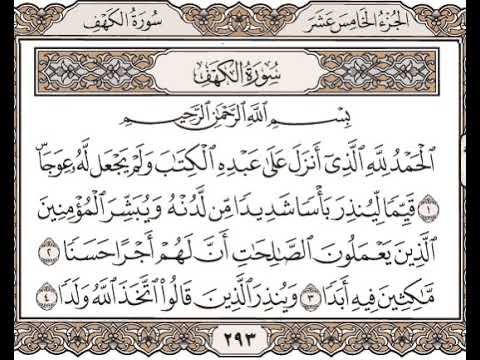 الجزء الخامس عشر سورة الكهف
سورة الكهف
بِسْمِ ٱللَّهِ ٱلرَّحْمَٰنِ ٱلرَّحِيمِ
ٱلْحَمْدُ لِلَّهِ ٱلَّذِىٓ أَنزَلَ عَلَىٰ عَبْدِهِ ٱلْكِتَٰبَ وَلَمْ يَجْعَل لَّهُۥ عِوَجَاۜ
١ قَيِّمًا لِّيُنذِرَ بَأْسًا شَدِيدًا مِّن لَّدُنْهُ وَيُبَشِّرَ ٱلْمُؤْمِنِينَ
ٱلَّذِينَ يَعْمَلُونَ ٱلصَّٰلِحَٰتِ أَنَّ لَهُمْ أَجْرًا حَسَنًا ٢
مَّٰكِثِينَ فِيهِ أَبَدًا ٣ وَيُنذِرَ ٱلَّذِينَ قَالُوا۟ ٱتَّخَذَ ٱللَّهُ وَلَدًا ٤
٢٩٣